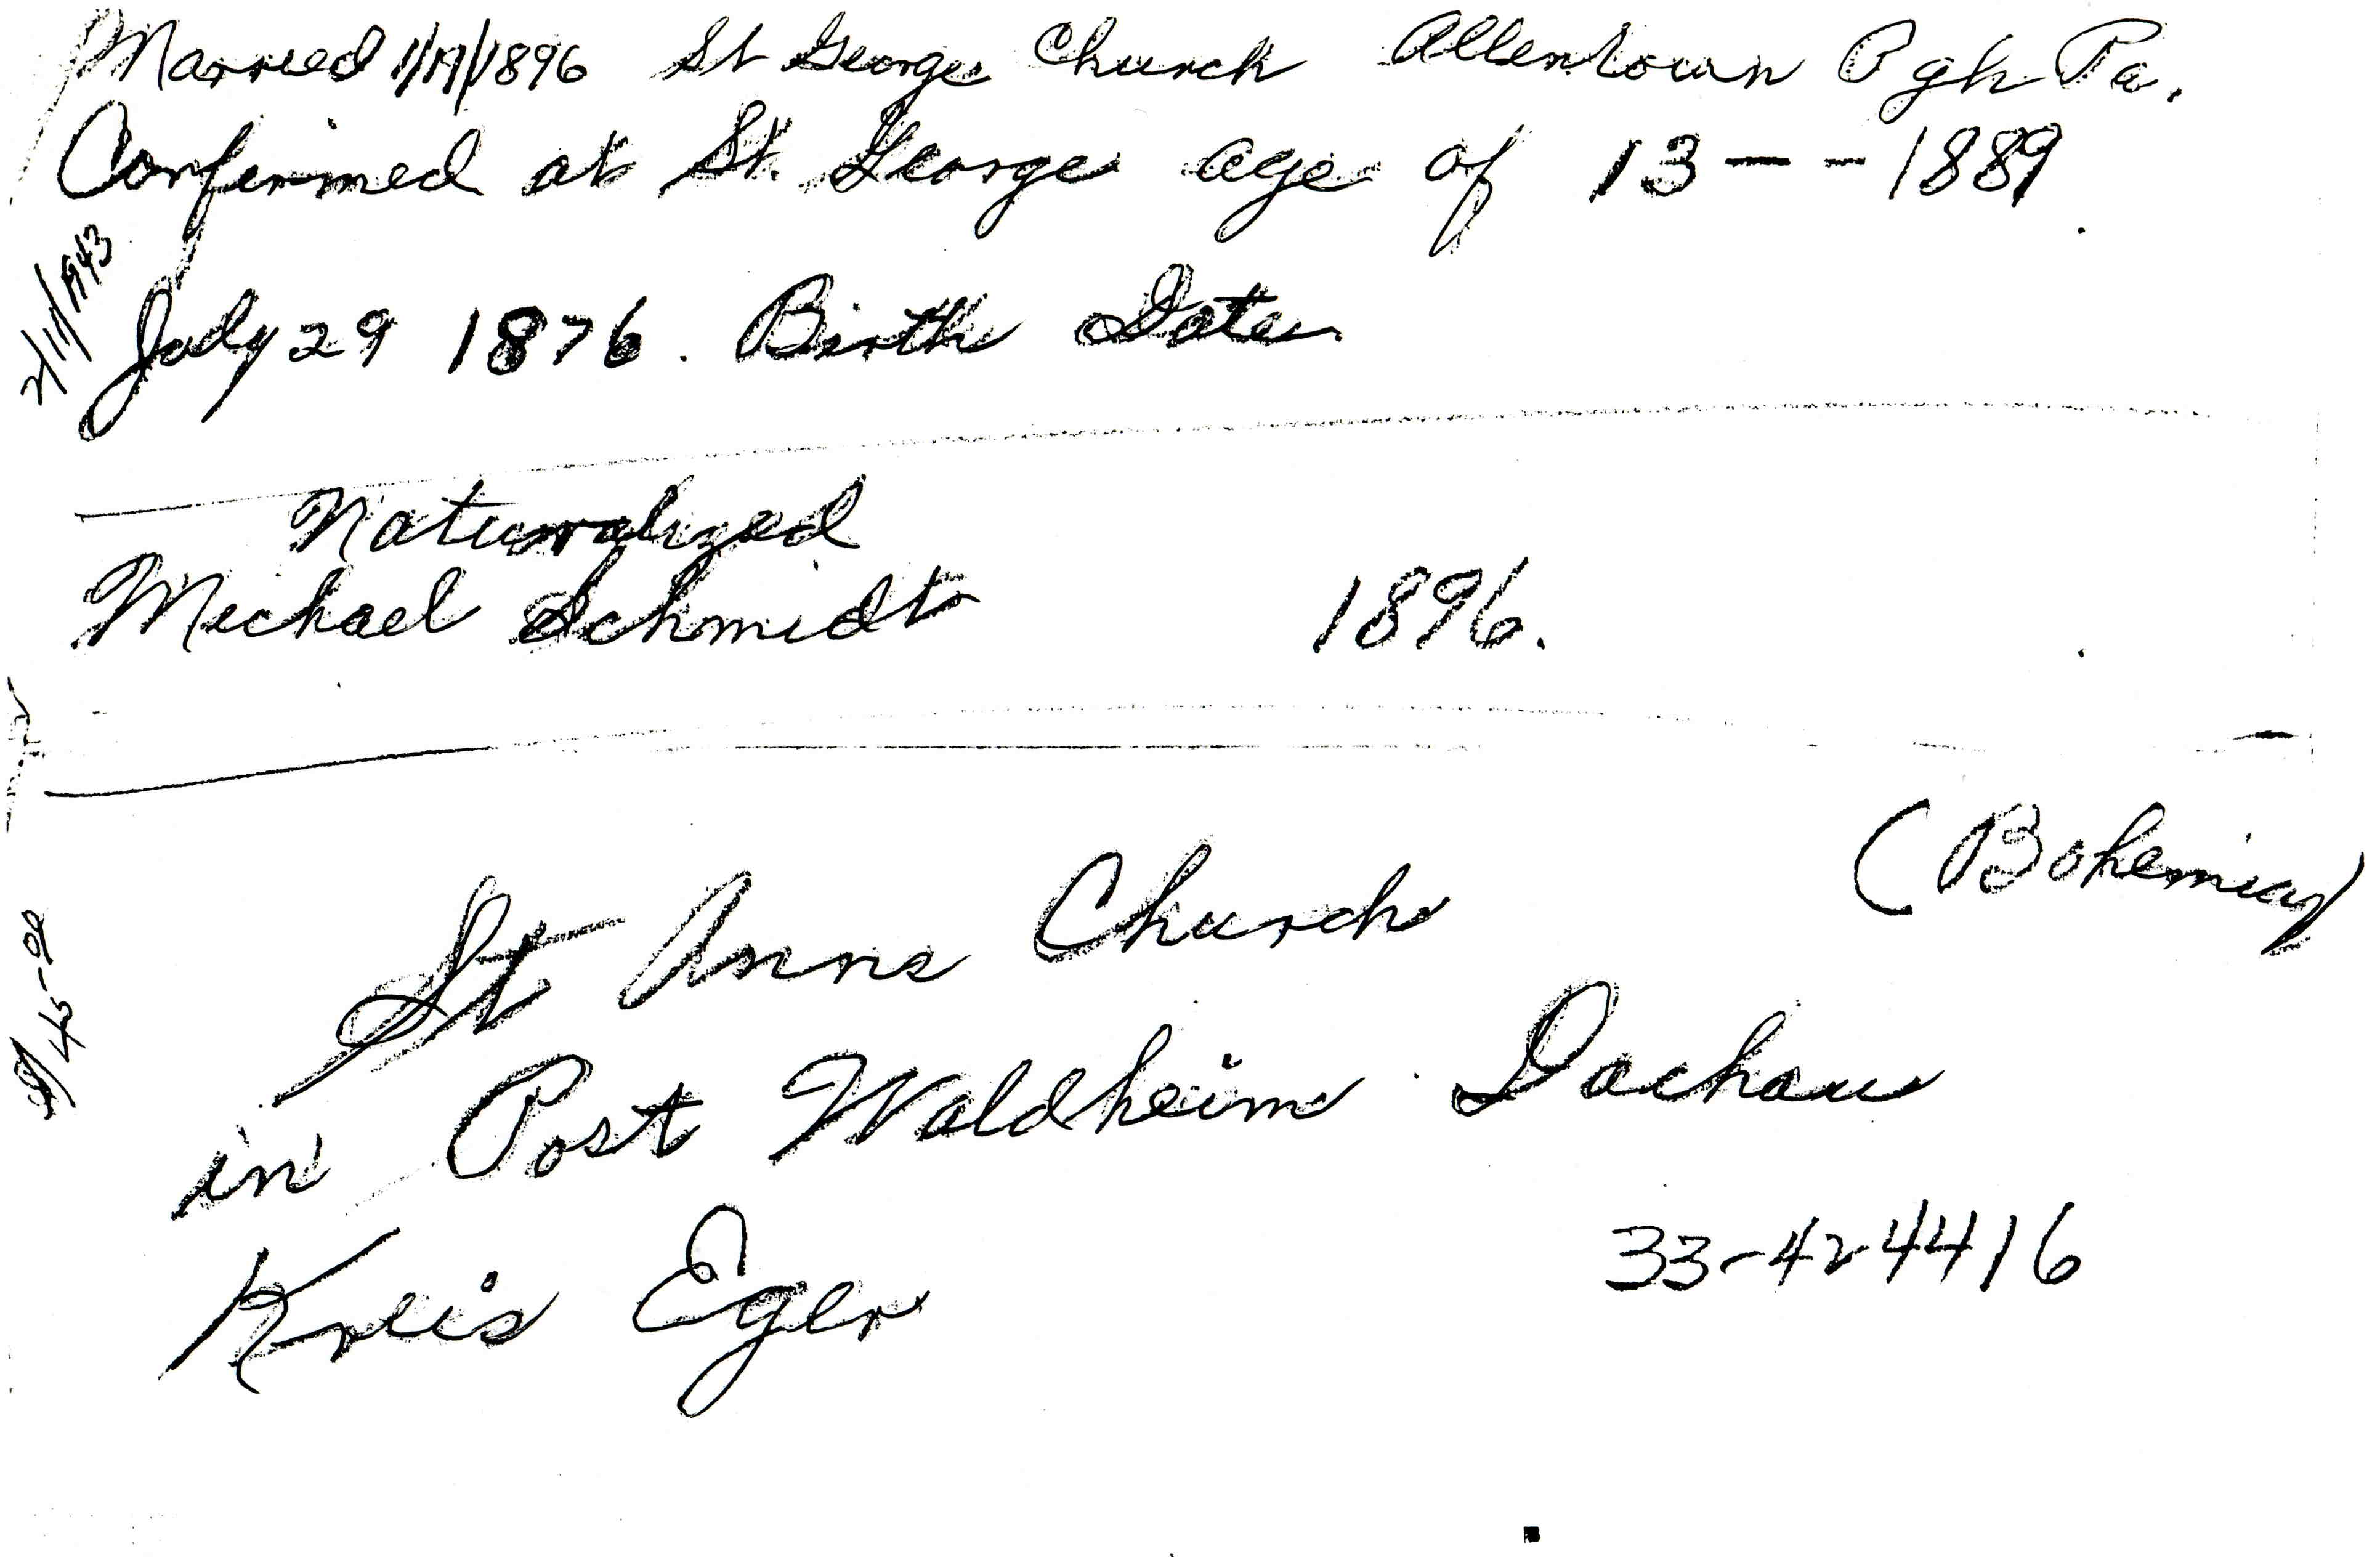 Married 1/19/1896 St George Church Allentown Pgh Pa.
Confirmed at St. George age of 13 -- 1889
July 29 1876. Birth Date
Naturalized
Michael Schmidt 1896.
(Bohemia)
St Anns Church
in Post Waldheim Dachau
Kreis Eger
33-424416